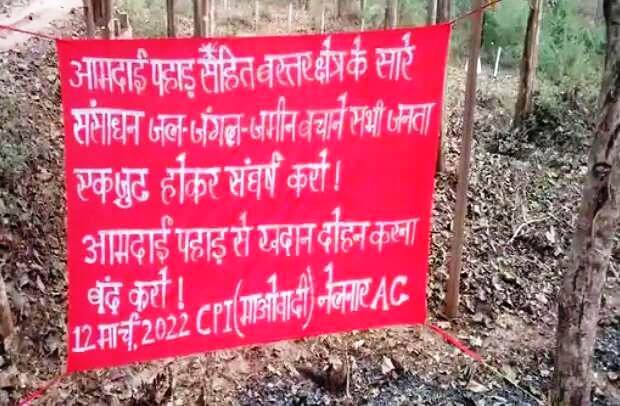 आमदाई पहाड़ सहित बस्तर क्षेत्र के सारे
संसाधन जल-जंगल-जमीन बचाने सभी जनता
एकजुट होकर संघर्ष करो!
आमदाई पहाड़ से खदान दोहन करना
बंद करो!
12 मार्च, 2022 CPI(माओवादी) नेलनार AC